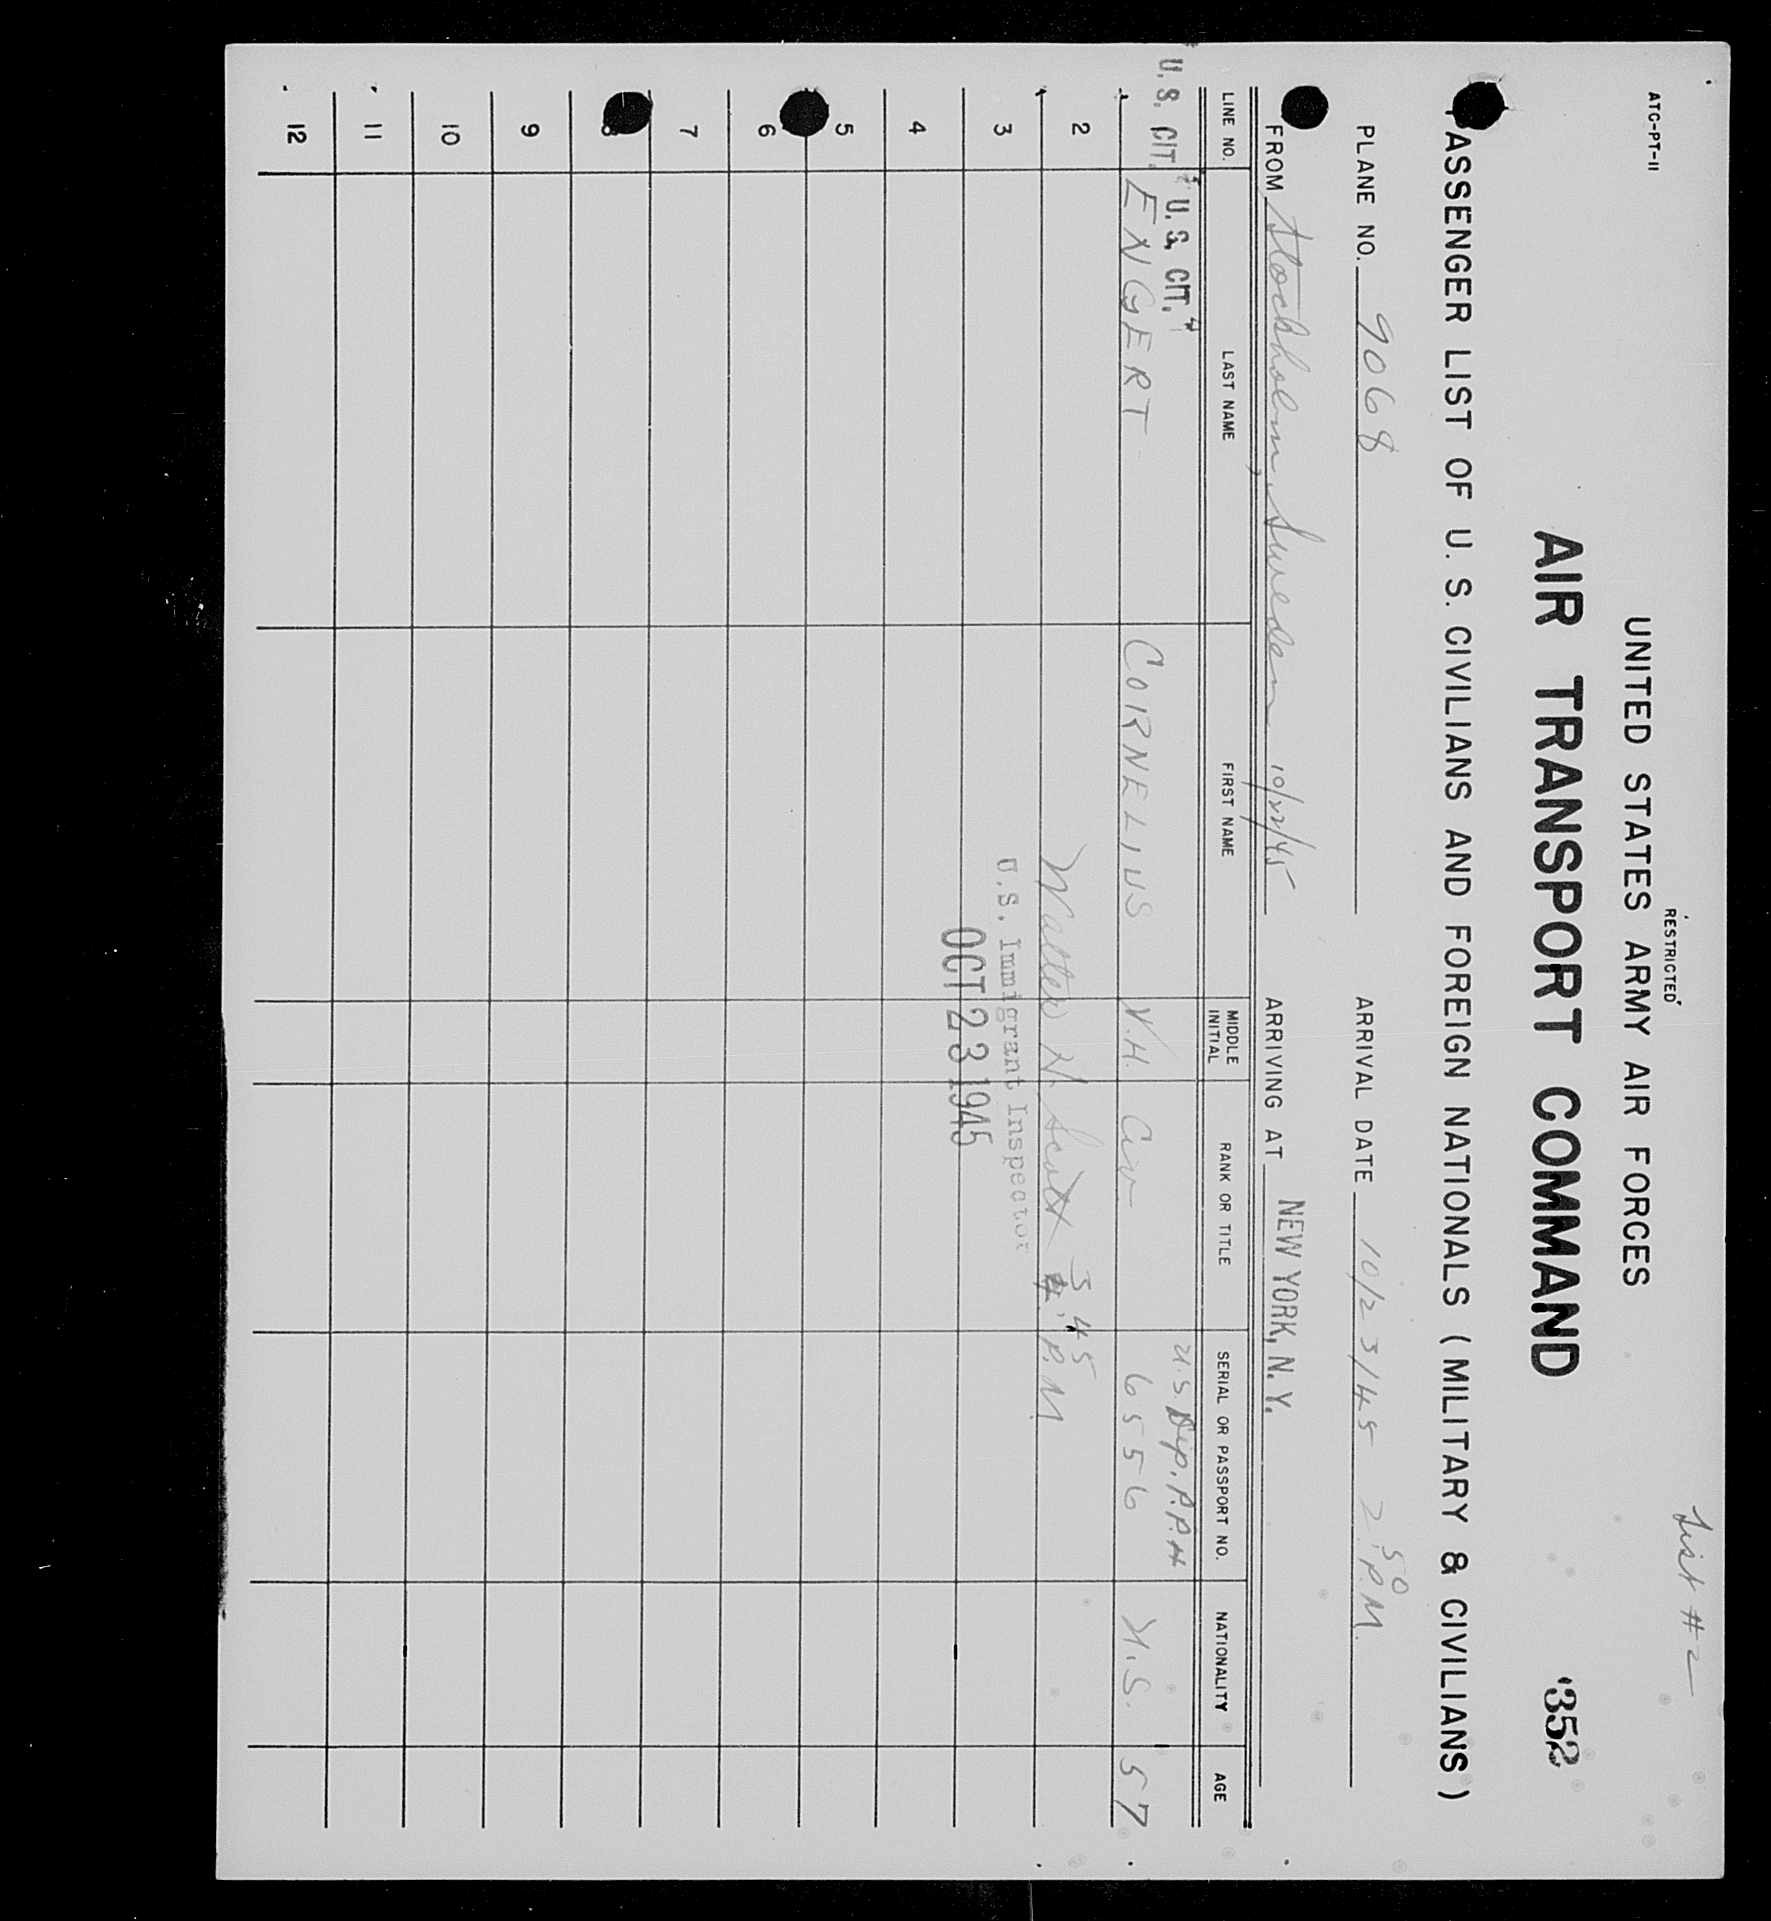 ATC-PT-11
"RESTRICTED"
List #2
UNITED STATES ARMY AIR FORCES
AIR TRANSPORT COMMAND
352
PASSENGER LIST OF U. S. CIVILIANS AND FOREIGN NATIONALS (MILITARY & CIVILIANS)
PLANE NO. 9068 ARRIVAL DATE 10/23/45 2:50 P.M.
FROM Stockholm, Sweden 10/22/45 ARRIVING AT NEW YORK, N.Y.
LINE NO. LAST NAME FIRST NAME MIDDLE INITIAL RANK OR TITLE SERIAL OR PASSPORT NO. NATIONALITY AGE
U. S. CIT. "U. S. CIT." U.S. Dip. P.P.#
ENGERT CORNELIUS V.H. Civ 6556 U.S. 57
2 Walter N. Scott 3:45 P.M
3 U.S. Immigrant Inspector
OCT 23 1945
4
5
6
7
8
9
10
11
12